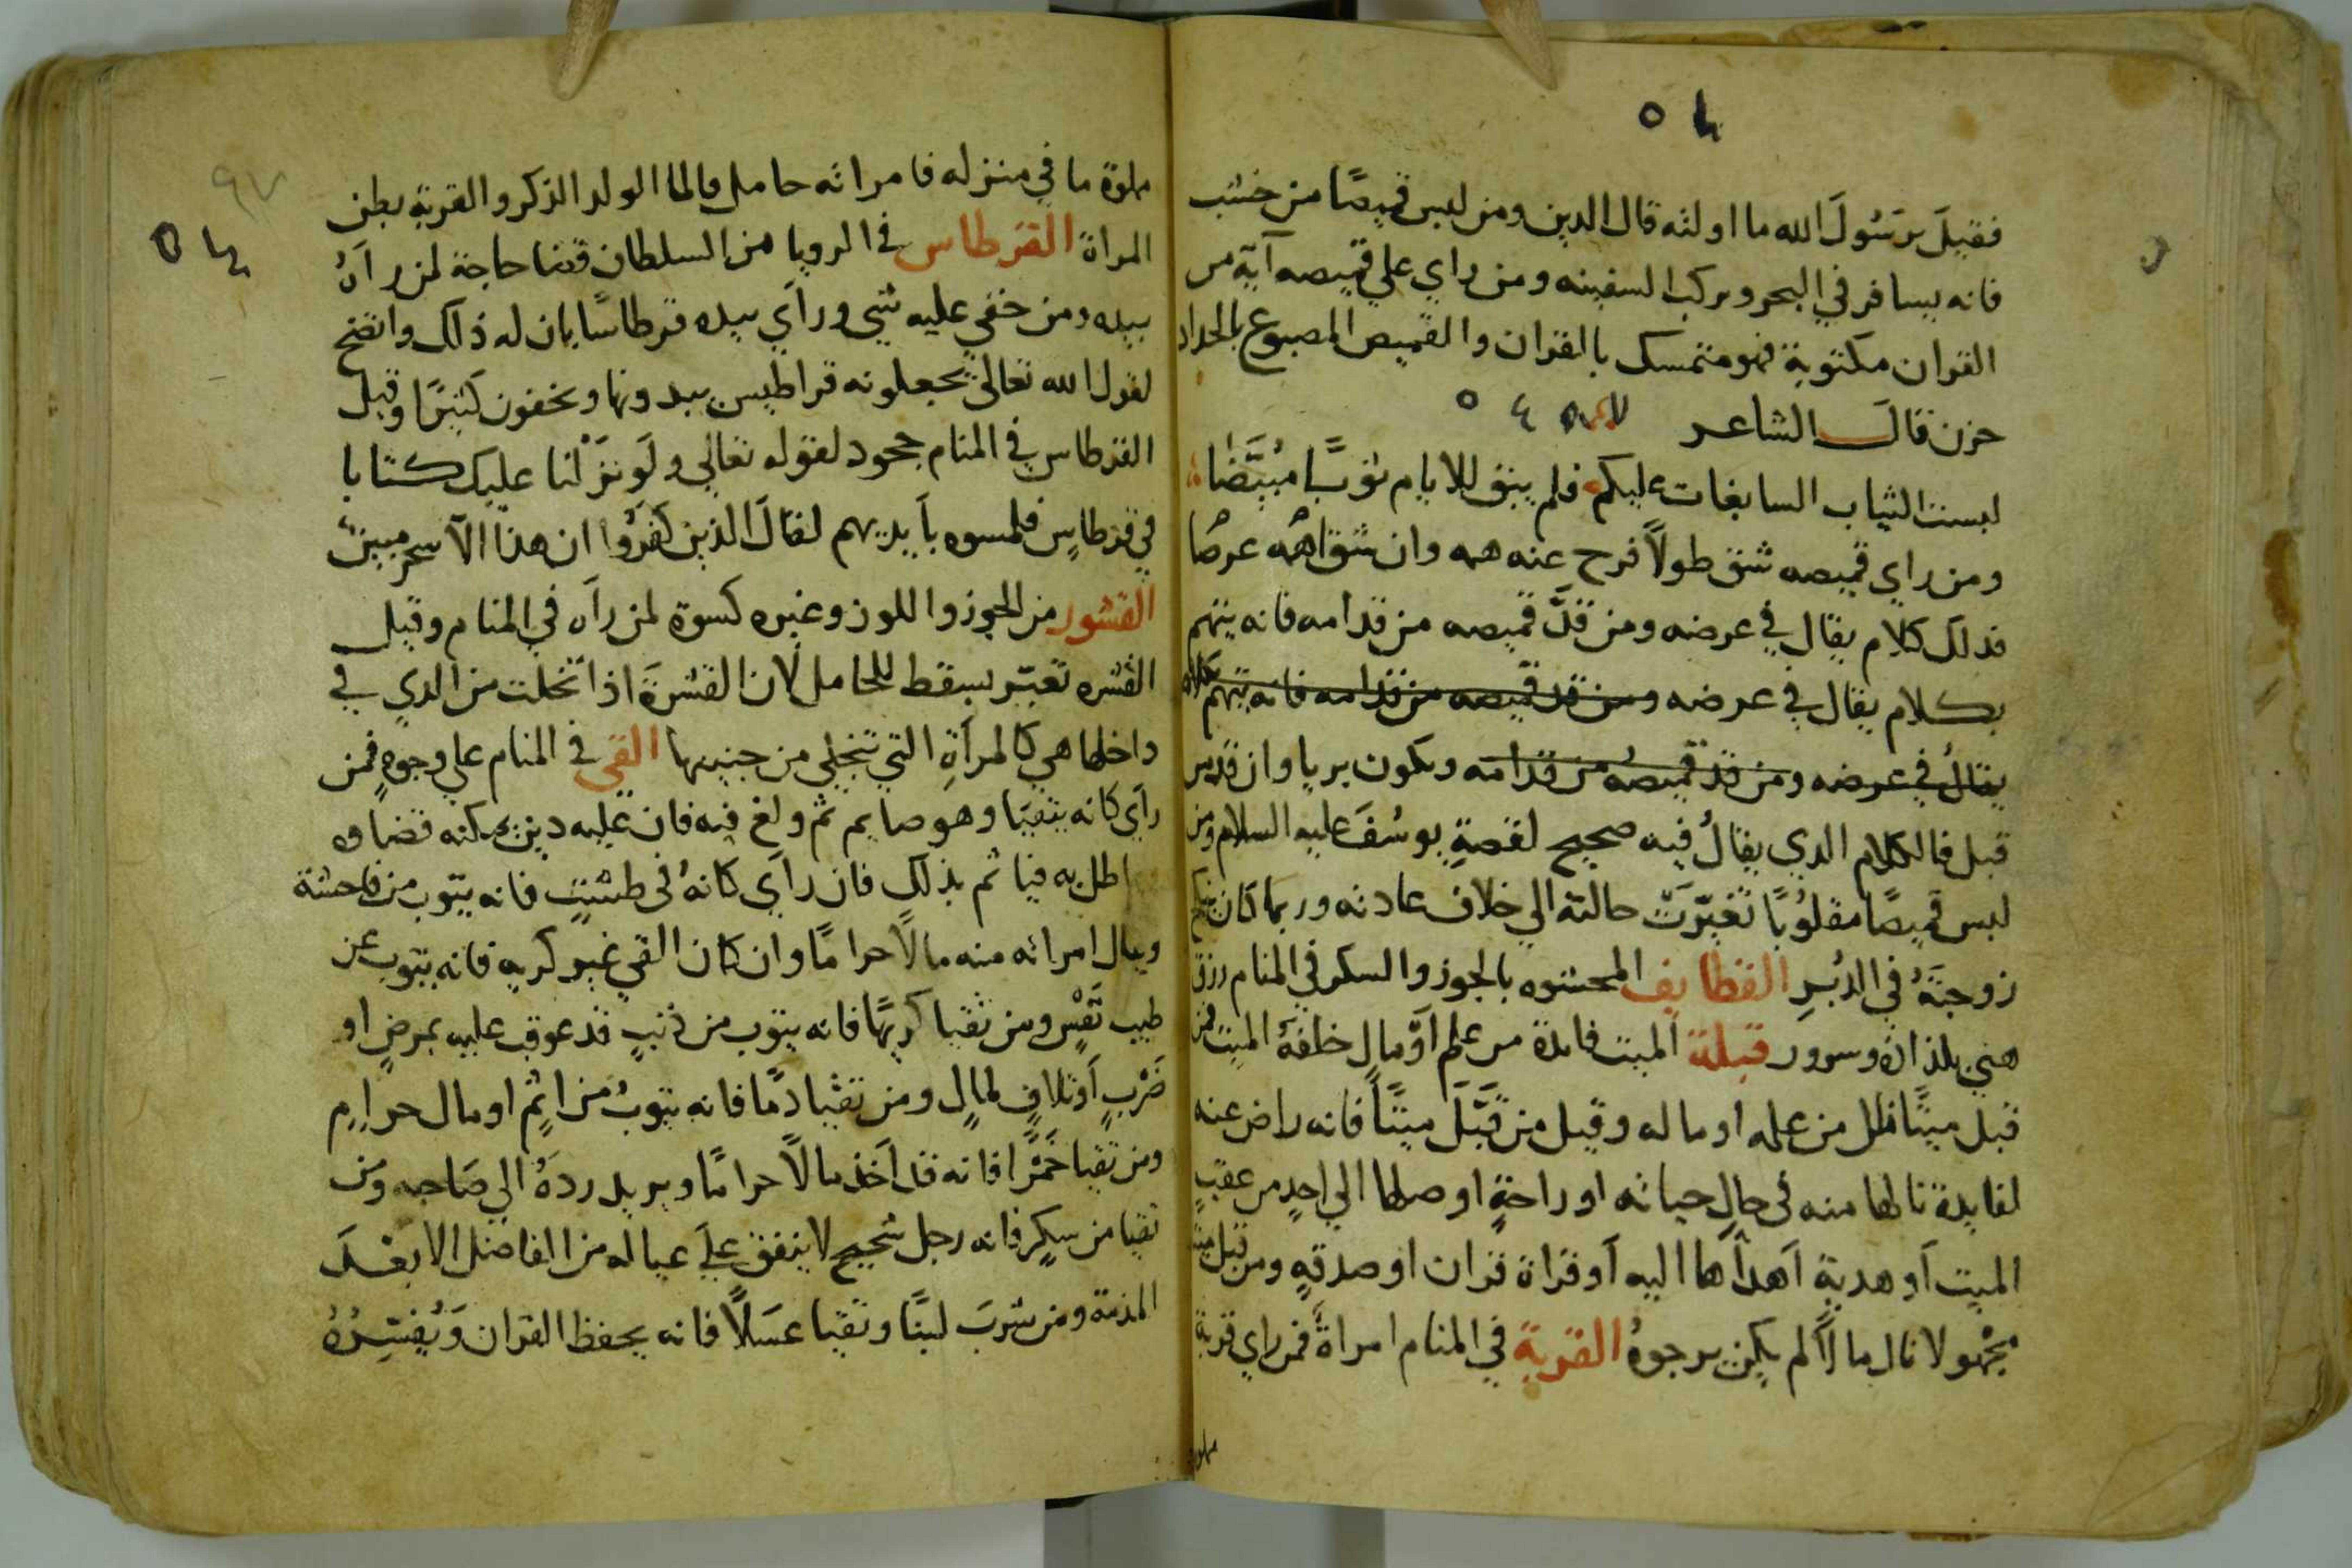 فقيل يرسول الله ما اولته قال الدين ومن لبس قميصًا من خشب
فانه يسافر في البحر ويركب السفينه ومن راي علي قميصه آية من
القران مكتوبة فهو متمسك بالقران والقميص المصبوغ بالحداد
حزن قال الشاعر
لبست الثياب السابغات عليكم فلم يبق للايام ثوبًا مبيّضا
ومن راي قميصه شق طولاً فرح عنه همه وان شقاهه عرضا
فذلك كلام يقال في عرضه ومن قدّ قميصه من قدامه فانه يتهم
بكلام يقال في عرضه ومن قد قميصه من قدامه فانه يتهم بكلام
يقالُ في عرضه ومن قد قميصُه من قدامه ويكون بريا وان قد من
قبل فالكلام الدي يقالُ فيه صحيح لقصةِ يوسُفَ عليه السلام ومن
لبس قميصًا مقلوُبًا تغيّرَتْ حالته الي خلاف عادته وربما كان ينكح
زوجتَهُ في الدُبُرِ القطايف المحشوه بالجوز والسكر في المنام رزق
هني بلذاذة وسرور قبلة الميت فايدة من علم اوْ مالٍ خلفهُ الميت فمن
قبل ميتًا نال من علمه او ماله وقيل من قَبَّلَ ميتًا فانه راض عنه
لفايدة نالها منه في حالِ حياته او راحةٍ اوصلها الي احدٍ من عقبٍ
الميت آو هدية اَهدآها اليه آو قراة قران او صدقةٍ ومن قبل ميتا
مجْهولا نال مالاً لم يكن يرجوهُ القربة في المنام امراةٌ فمن راي قربة
مملوة
مملوة ما في منزله فامراته حامل فالما الولد الذكر والقربة بطن
المراة القرطاس في الرويا من السلطان قضا حاجة لمن راَهُ
بيده ومن خفي عليه شي وراَي بيده قرطاسًا بان له ذلك واتضح
لقول الله تعالى تجعلونه قراطيس يبدونها ويخفون كثيرًا وقيل
القرطاس في المنام جحود لقوله تعالي ولَو نزّلْنا عليك كتابا
في قرطاسٍ فلمسوه بأيديهم لقالَ الذين كَفَرُوا ان هذا اَلا سحرٌ مبينٌ
القشور من الجوز واللوز وغيره كسوة لمن رآه في المنام وقيل
القشره تعبّر بسقط للحامل لان القشرةَ اذا تخلت من الدي في
داخلها هي كالمرأةِ التي تتخلي من جنينها القي في المنام علي وجوهٍ فمن
رأي كانه يتقيّا وهو صايم ثم ولغ فيه فان عليه دين يمكنه قضاوه
اطل به فيا ثم بذلك فان رأي كانهُ في طشتٍ فانه يتوب من فاحشة
وينال امراته منه مالاً حرامًا وان كان القي غير كريه فانه يتوب عن
طيب نَفسٍ ومن تقيا كريهًا فانه يتوب من ذنبٍ قد عوقب عليه بمرضٍ او
ضَرْبٍ اَوتلافٍ لمالٍ ومن تقيا دمًا فانه يتوبُ من اثمٍ او مال حرامٍ
ومن تقيا خَمْرًا فانه قد اَخذ مالاً حرامًا ويريد ردهُ الي صَاحبه ومن
تقيا من سكرٍ فانه رجل شحيح لا ينفق علَي عياله من الفاضل الا بعْدَ
المذمة ومن شربَ لبنًا وتقيا عسَلاً فانه يحفظ القران وَيُفسّرُهُ